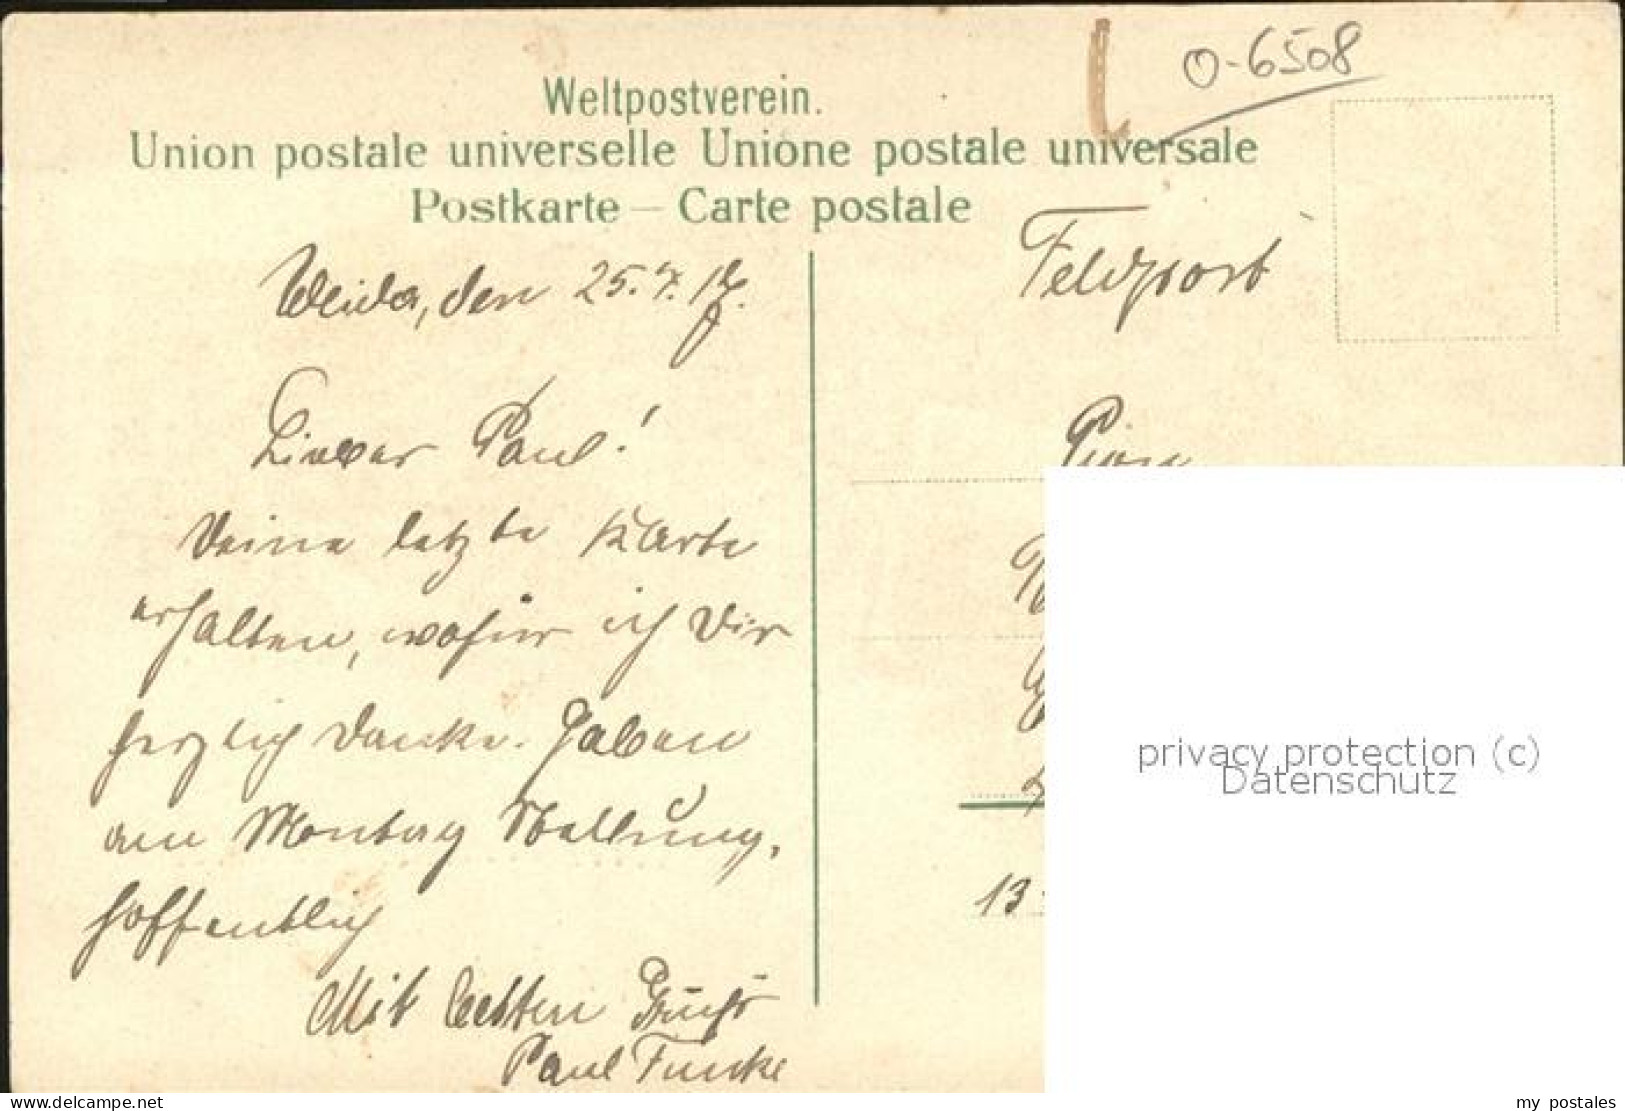 O-6508
Weltpostverein.
Union postale universelle Unione postale universale
Postkarte — Carte postale
Weida, den 25.4.17.
Feldpost
Lieber Paul!
Pion
Deine letzte Karte
erhalten, wofür ich Dir
herzlich danke. Haben
am Montag Stellung,
hoffentlich
13
Mit besten Gruß
Paul Funke
privacy protection (c)
Datenschutz
www.delcampe.net
my_postales